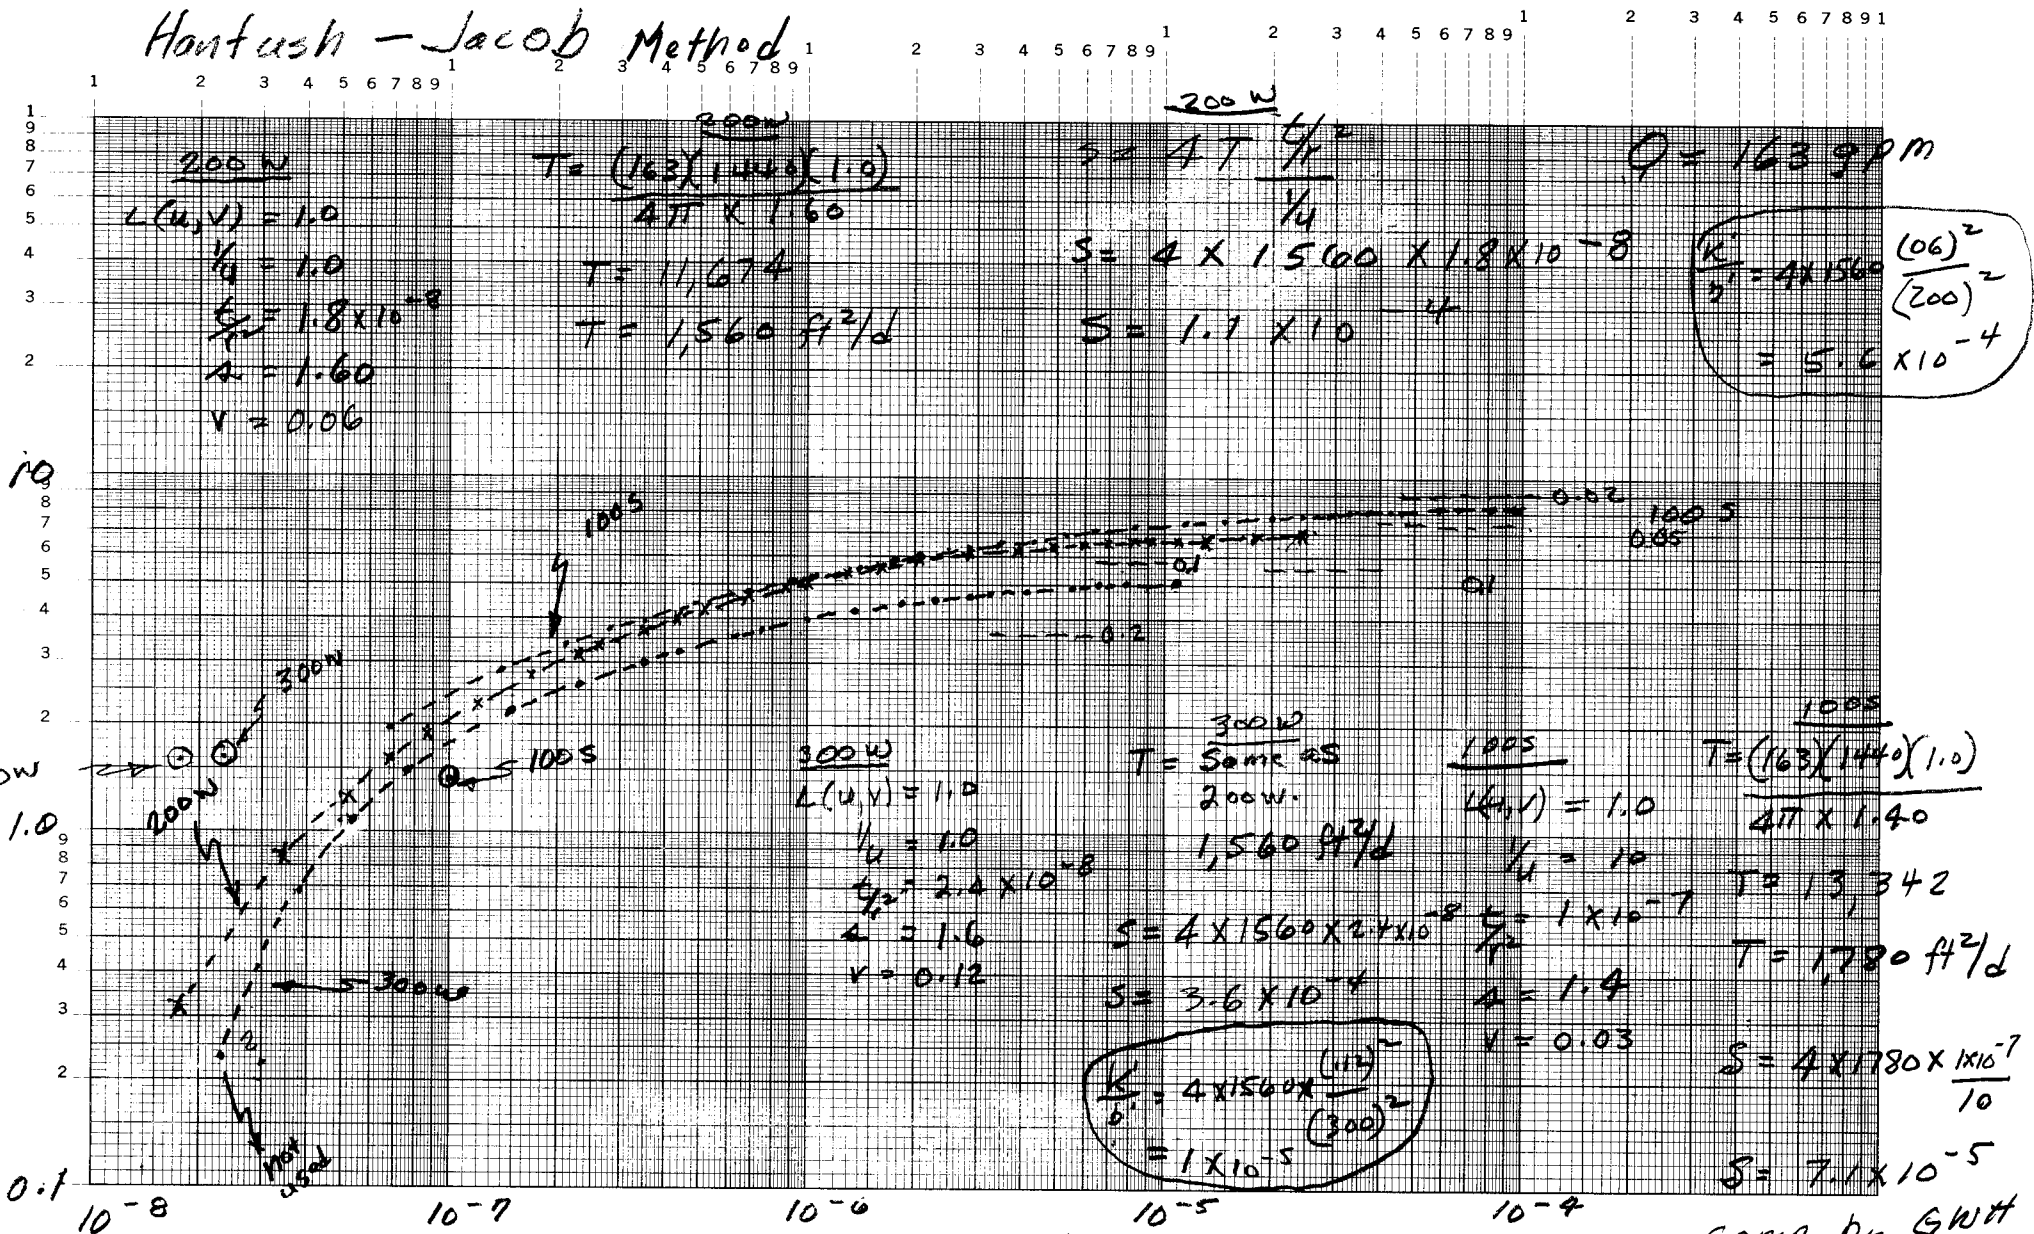 Hantush - Jacob Method
1 2 3 4 5 6 7 8 9 1 2 3 4 5 6 7 8 9 1 2 3 4 5 6 7 8 9 1 2 3 4 5 6 7 8 9 1 2 3 4 5 6 7 8 9 1
200 W
L(u,v) = 1.0
1/u = 1.0
t/r² = 1.8 x 10⁻⁸
s = 1.60
v = 0.06
200 W
T = (163)(1440)(1.0)
4π x 1.60
T = 11,674
T = 1,560 ft²/d
200 W
S = 4T t/r²
1/u
S = 4 x 1560 x 1.8 x 10⁻⁸
S = 1.1 x 10⁻⁴
Q = 163 gpm
K'/b' = 4 x 1560 (06)²
(200)²
= 5.6 x 10⁻⁴
1
9
8
7
6
5
4
3
2
10
9
8
7
6
5
4
3
2
1.0
9
8
7
6
5
4
3
2
0.1
100 S
0.02
100 S
0.05
0.1
0.1
0.2
300W
200W
100 S
300W
not used
300 W
L(u,v) = 1.0
1/u = 1.0
t/r² = 2.4 x 10⁻⁸
s = 1.6
v = 0.12
300 W
T = Same as
200 W.
1,560 ft²/d
S = 4 x 1560 x 2.4 x 10⁻⁸
S = 3.6 x 10⁻⁴
K'/b' = 4 x 1560 x (.12)²
(300)²
= 1 x 10⁻⁵
100 S
L(u,v) = 1.0
1/u = 10
t/r² = 1 x 10⁻⁷
s = 1.4
v = 0.03
100 S
T = (163)(1440)(1.0)
4π x 1.40
T = 13,342
T = 1,780 ft²/d
S = 4 x 1780 x 1x10⁻⁷
10
S = 7.1 x 10⁻⁵
10⁻⁸ 10⁻⁷ 10⁻⁶ 10⁻⁵ 10⁻⁴
GWH